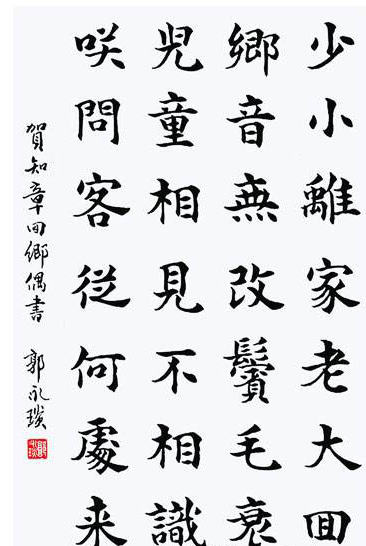 少小離家老大回
鄉音無改鬢毛衰
兒童相見不相識
咲問客從何處来
賀知章回鄉偶書 郭永琰